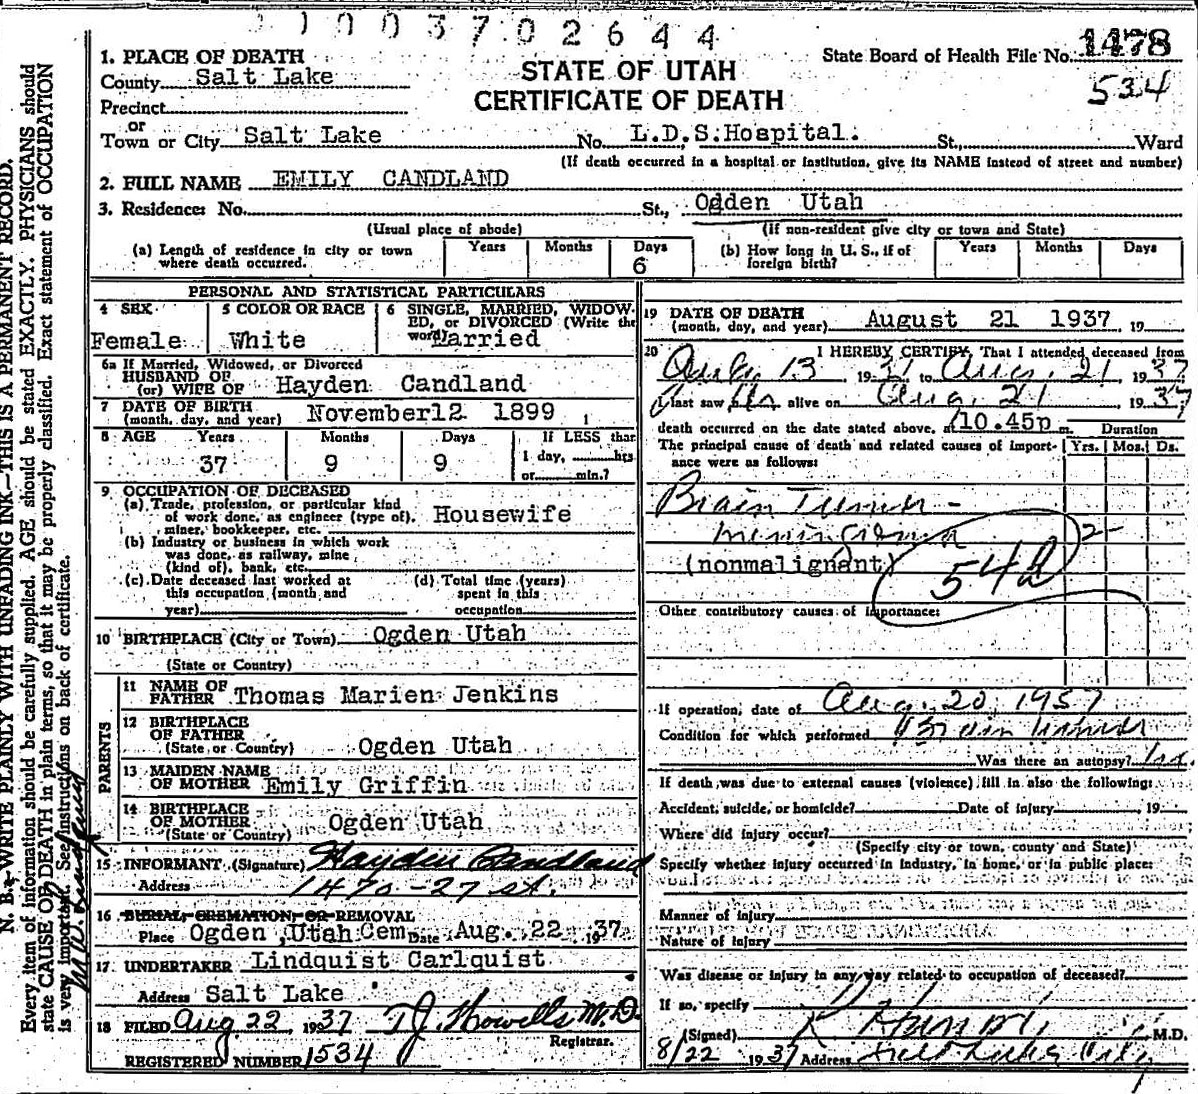 1003702644
1. PLACE OF DEATH
County Salt Lake
Precinct
or
Town or City Salt Lake
STATE OF UTAH
CERTIFICATE OF DEATH
State Board of Health File No. 1478
534
No. L.D.S. Hospital. St., Ward
(If death occurred in a hospital or institution, give its NAME instead of street and number)
2. FULL NAME EMILY CANDLAND
3. Residence: No. St., Ogden Utah
(Usual place of abode) (If non-resident give city or town and State)
(a) Length of residence in city or town where death occurred. Years Months Days 6
(b) How long in U. S., if of foreign birth? Years Months Days
PERSONAL AND STATISTICAL PARTICULARS
4 SEX Female
5 COLOR OR RACE White
6 SINGLE, MARRIED, WIDOWED, or DIVORCED (Write the word) Married
6a If Married, Widowed, or Divorced
HUSBAND OF
(or) WIFE OF Hayden Candland
7 DATE OF BIRTH
(month, day, and year) November 12 1899
8 AGE Years 37 Months 9 Days 9
If LESS than 1 day, hrs or min.?
9 OCCUPATION OF DECEASED
(a) Trade, profession, or particular kind
of work done, as engineer (type of), Housewife
miner, bookkeeper, etc.
(b) Industry or business in which work
was done, as railway, mine
(kind of), bank, etc.
(c) Date deceased last worked at
this occupation (month and
year)
(d) Total time (years)
spent in this
occupation
10 BIRTHPLACE (City or Town) Ogden Utah
(State or Country)
PARENTS
11 NAME OF
FATHER Thomas Marien Jenkins
12 BIRTHPLACE
OF FATHER
(State or Country) Ogden Utah
13 MAIDEN NAME
OF MOTHER Emily Griffin
14 BIRTHPLACE
OF MOTHER Ogden Utah
(State or Country)
15 INFORMANT (Signature) Hayden Candland
Address 1470-27 st.
16 BURIAL, CREMATION, OR REMOVAL
Place Ogden, Utah Cem Date Aug. 22 1937
17 UNDERTAKER Lindquist Carlquist
Address Salt Lake
18 FILED Aug 22, 1937 T J Howells M.D.
Registrar.
REGISTERED NUMBER 1534
19 DATE OF DEATH
(month, day, and year) August 21 1937 19
20 I HEREBY CERTIFY, That I attended deceased from
13 1937 to Aug. 21 1937
I last saw her alive on Aug. 21 1937
death occurred on the date stated above, at 10.45p m. Duration
The principal cause of death and related causes of importance were as follows: Yrs. Mos. Ds.
Brain Tumor -
meningioma 2-
(nonmalignant)
Other contributory causes of importance:
If operation, date of Aug. 20, 1937
Condition for which performed Brain tumor
Was there an autopsy?
If death was due to external causes (violence) fill in also the following:
Accident, suicide, or homicide? Date of injury 19
Where did injury occur?
(Specify city or town, county and State)
Specify whether injury occurred in industry, in home, or in public place:
Manner of injury
Nature of injury
Was disease or injury in any way related to occupation of deceased?
If so, specify
(Signed) M.D.
8/22 1937 Address Salt Lake City
N. B.—WRITE PLAINLY WITH UNFADING INK—THIS IS A PERMANENT RECORD.
Every item of information should be carefully supplied. AGE should be stated EXACTLY. PHYSICIANS should
state CAUSE OR DEATH in plain terms, so that it may be properly classified. Exact statement of OCCUPATION
is very important. See instructions on back of certificate.